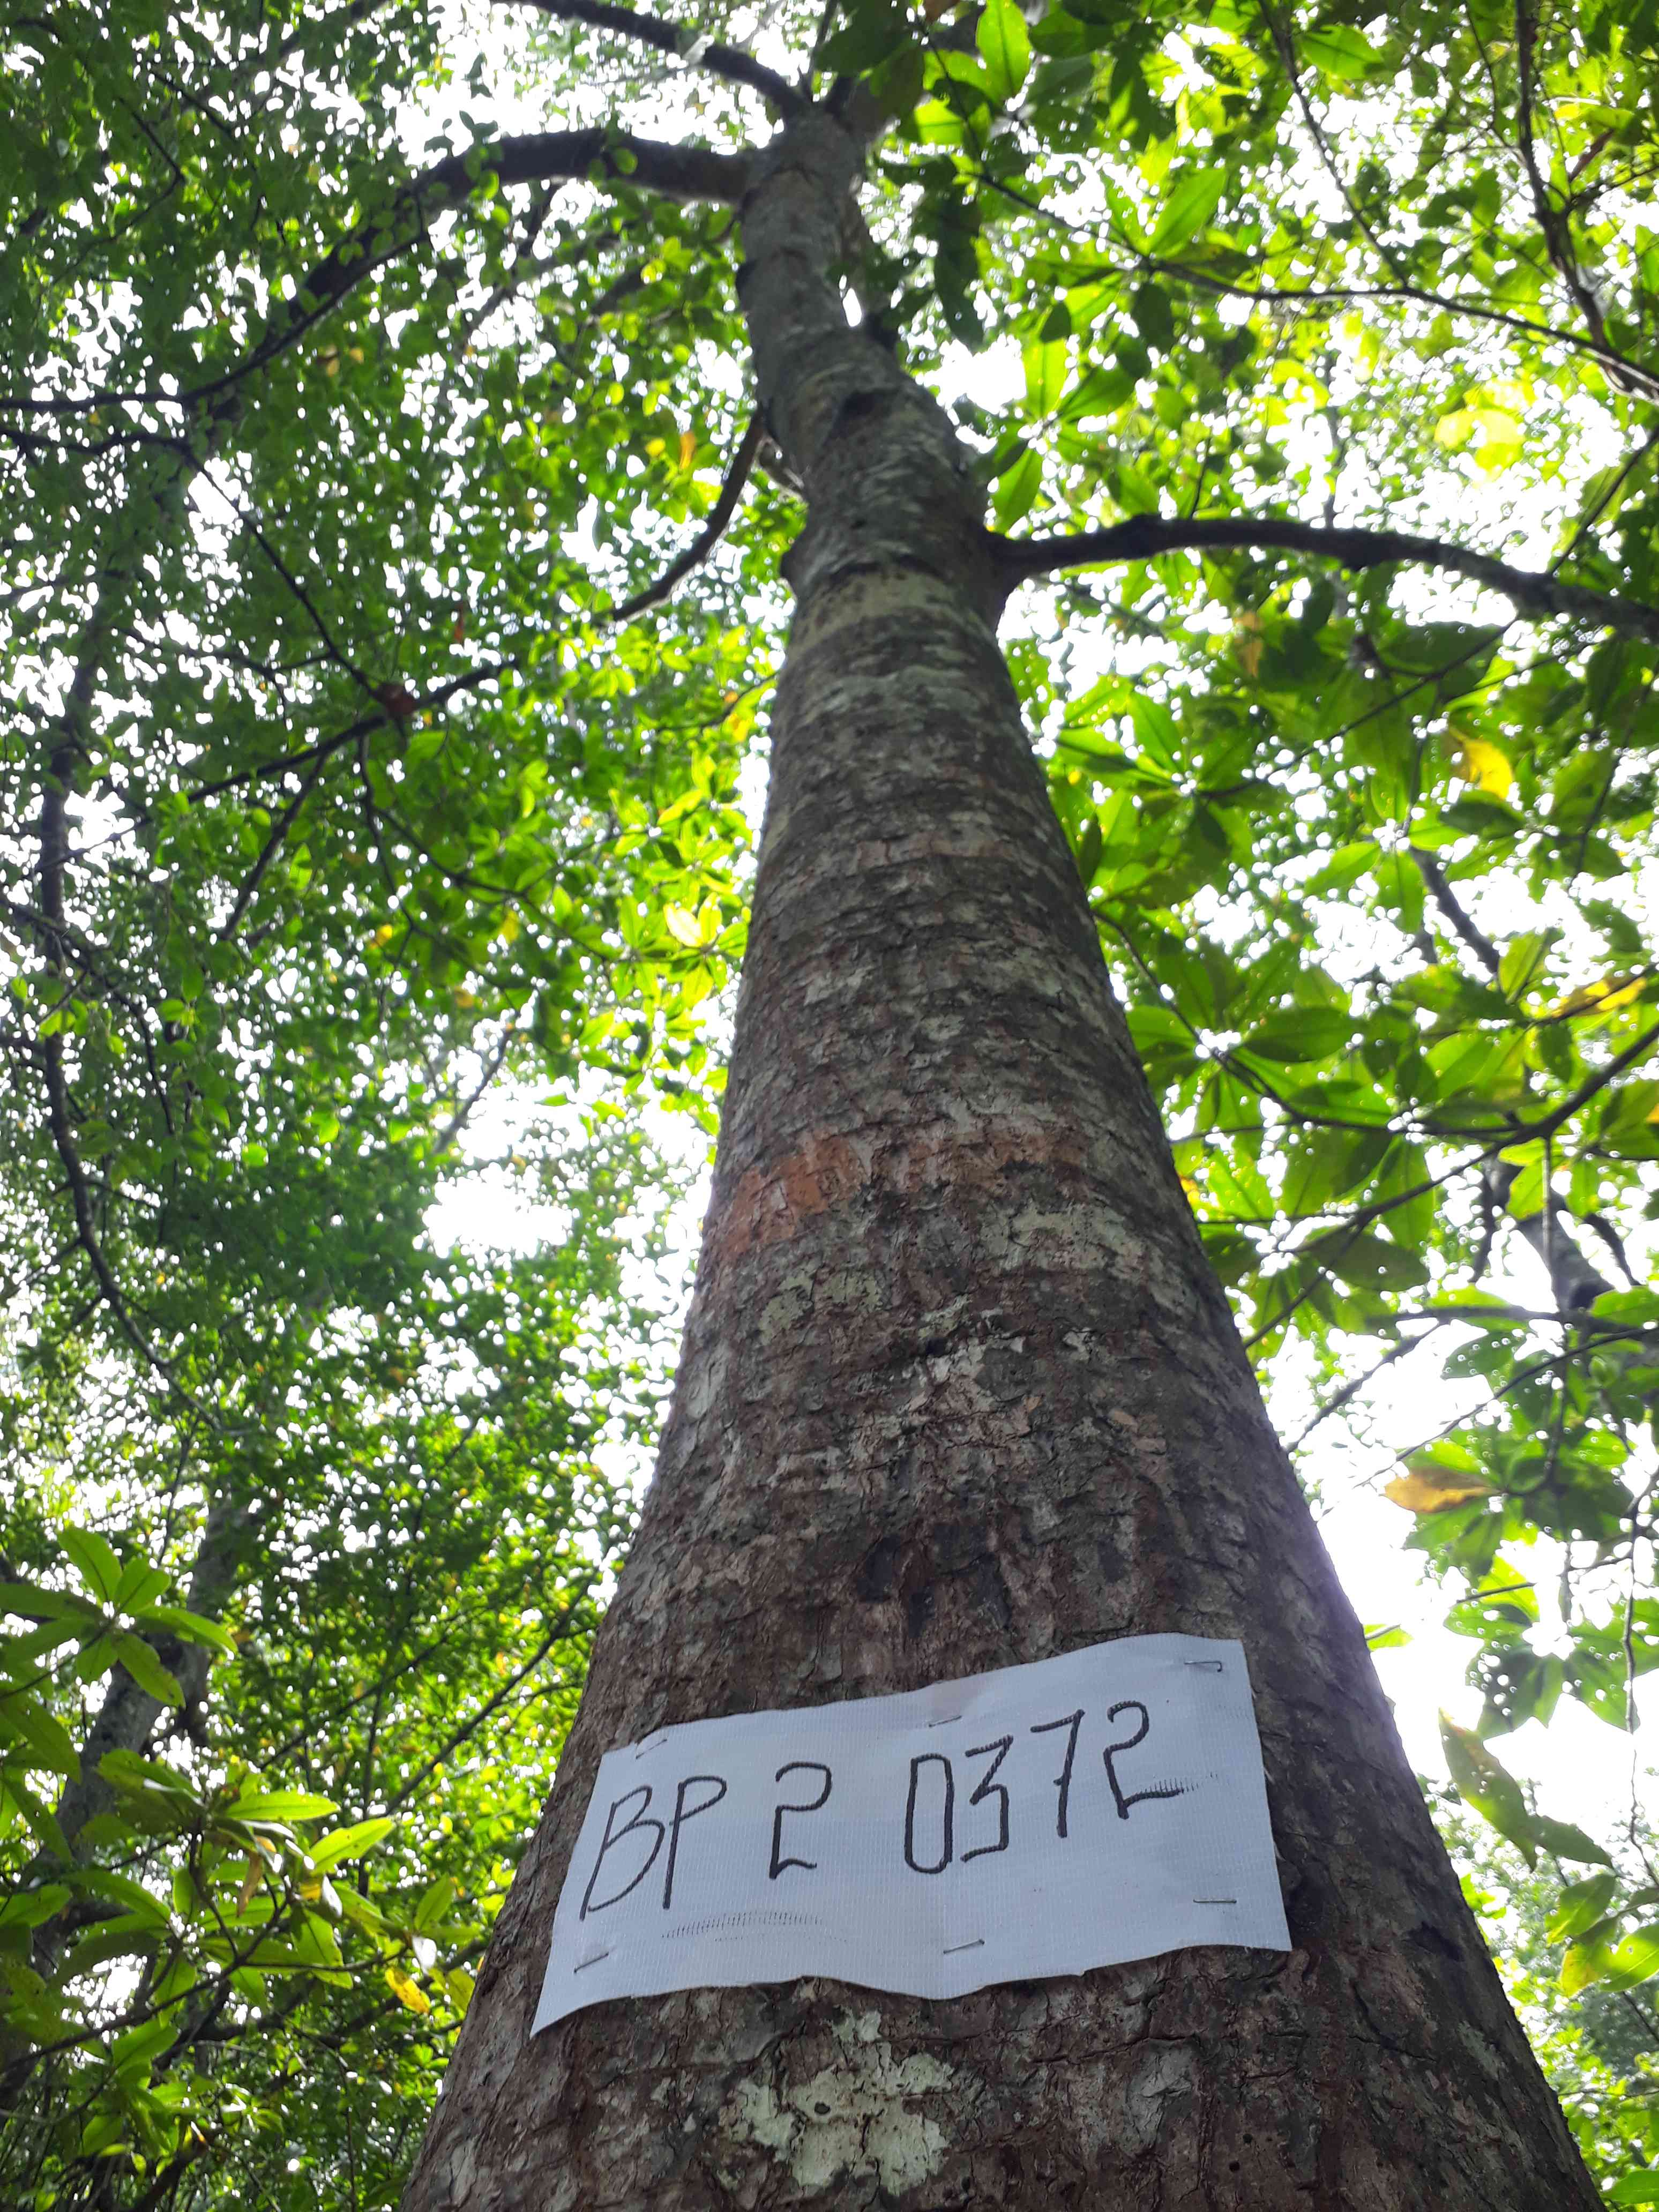 BP 2 0372